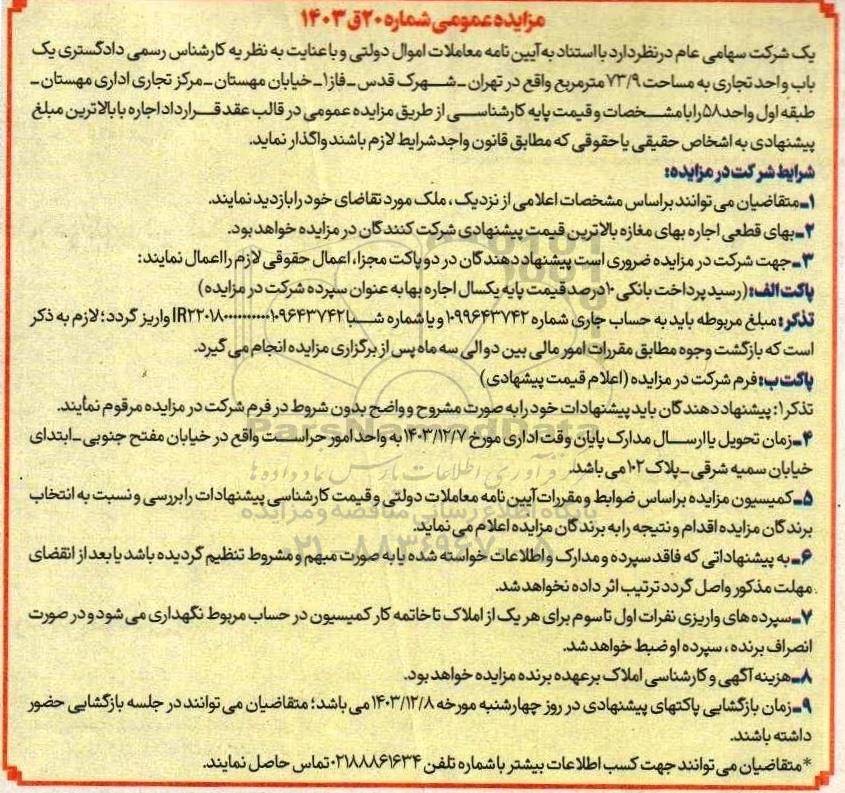 مزایده عمومی شماره ۲۰ق ۱۴۰۳
یک شرکت سهامی عام در نظر دارد با استناد به آیین نامه معاملات اموال دولتی و با عنایت به نظریه کارشناس رسمی دادگستری یک
باب واحد تجاری به مساحت ۷۳/۹ مترمربع واقع در تهران ـ شهرک قدس ـ فاز۱ ـ خیابان مهستان ـ مرکز تجاری اداری مهستان ـ
طبقه اول واحد ۵۸ را با مشخصات و قیمت پایه کارشناسی از طریق مزایده عمومی در قالب عقد قرارداد اجاره با بالاترین مبلغ
پیشنهادی به اشخاص حقیقی یا حقوقی که مطابق قانون واجد شرایط لازم باشند واگذار نماید.
شرایط شرکت در مزایده:
۱ـ متقاضیان می توانند براساس مشخصات اعلامی از نزدیک ، ملک مورد تقاضای خود را بازدید نمایند.
۲ـ بهای قطعی اجاره بهای مغازه بالاترین قیمت پیشنهادی شرکت کنندگان در مزایده خواهد بود.
۳ـ جهت شرکت در مزایده ضروری است پیشنهاد دهندگان در دو پاکت مجزا، اعمال حقوقی لازم را اعمال نمایند:
پاکت الف: (رسید پرداخت بانکی ۱۰ درصد قیمت پایه یکسال اجاره بها به عنوان سپرده شرکت در مزایده)
تذکر : مبلغ مربوطه باید به حساب جاری شماره ۱۰۹۹۶۴۳۷۴۲ و یا شماره شبا واریز گردد؛ لازم به ذکر
است که بازگشت وجوه مطابق مقررات امور مالی بین دو الی سه ماه پس از برگزاری مزایده انجام می گیرد.
پاکت ب: فرم شرکت در مزایده (اعلام قیمت پیشهادی)
تذکر ۱: پیشنهاد دهندگان باید پیشنهادات خود را به صورت مشروح و واضح بدون شروط در فرم شرکت در مزایده مرقوم نمایند.
۴ـ زمان تحویل یا ارسال مدارک پایان وقت اداری مورخ ۱۴۰۳/۱۲/۷ به واحد امور حراست واقع در خیابان مفتح جنوبی ـ ابتدای
خیابان سمیه شرقی ـ پلاک ۱۰۲ می باشد.
۵ـ کمیسیون مزایده براساس ضوابط و مقررات آیین نامه معاملات دولتی و قیمت کارشناسی پیشنهادات را بررسی و نسبت به انتخاب
برندگان مزایده اقدام و نتیجه را به برندگان مزایده اعلام می نماید.
۶ـ به پیشنهاداتی که فاقد سپرده و مدارک و اطلاعات خواسته شده یا به صورت مبهم و مشروط تنظیم گردیده باشد یا بعد از انقضای
مهلت مذکور واصل گردد ترتیب اثر داده نخواهد شد.
۷ـ سپرده های واریزی نفرات اول تا سوم برای هر یک از املاک تا خاتمه کار کمیسیون در حساب مربوط نگهداری می شود و در صورت
انصراف برنده ، سپرده او ضبط خواهد شد.
۸ـ هزینه آگهی و کارشناسی املاک بر عهده برنده مزایده خواهد بود.
۹ـ زمان بازگشایی پاکتهای پیشنهادی در روز چهارشنبه مورخه ۱۴۰۳/۱۲/۸ می باشد؛ متقاضیان می توانند در جلسه بازگشایی حضور
داشته باشند.
*متقاضیان می توانند جهت کسب اطلاعات بیشتر با شماره تلفن ۰۲۱۸۸۸۶۱۶۳۴ تماس حاصل نمایند.